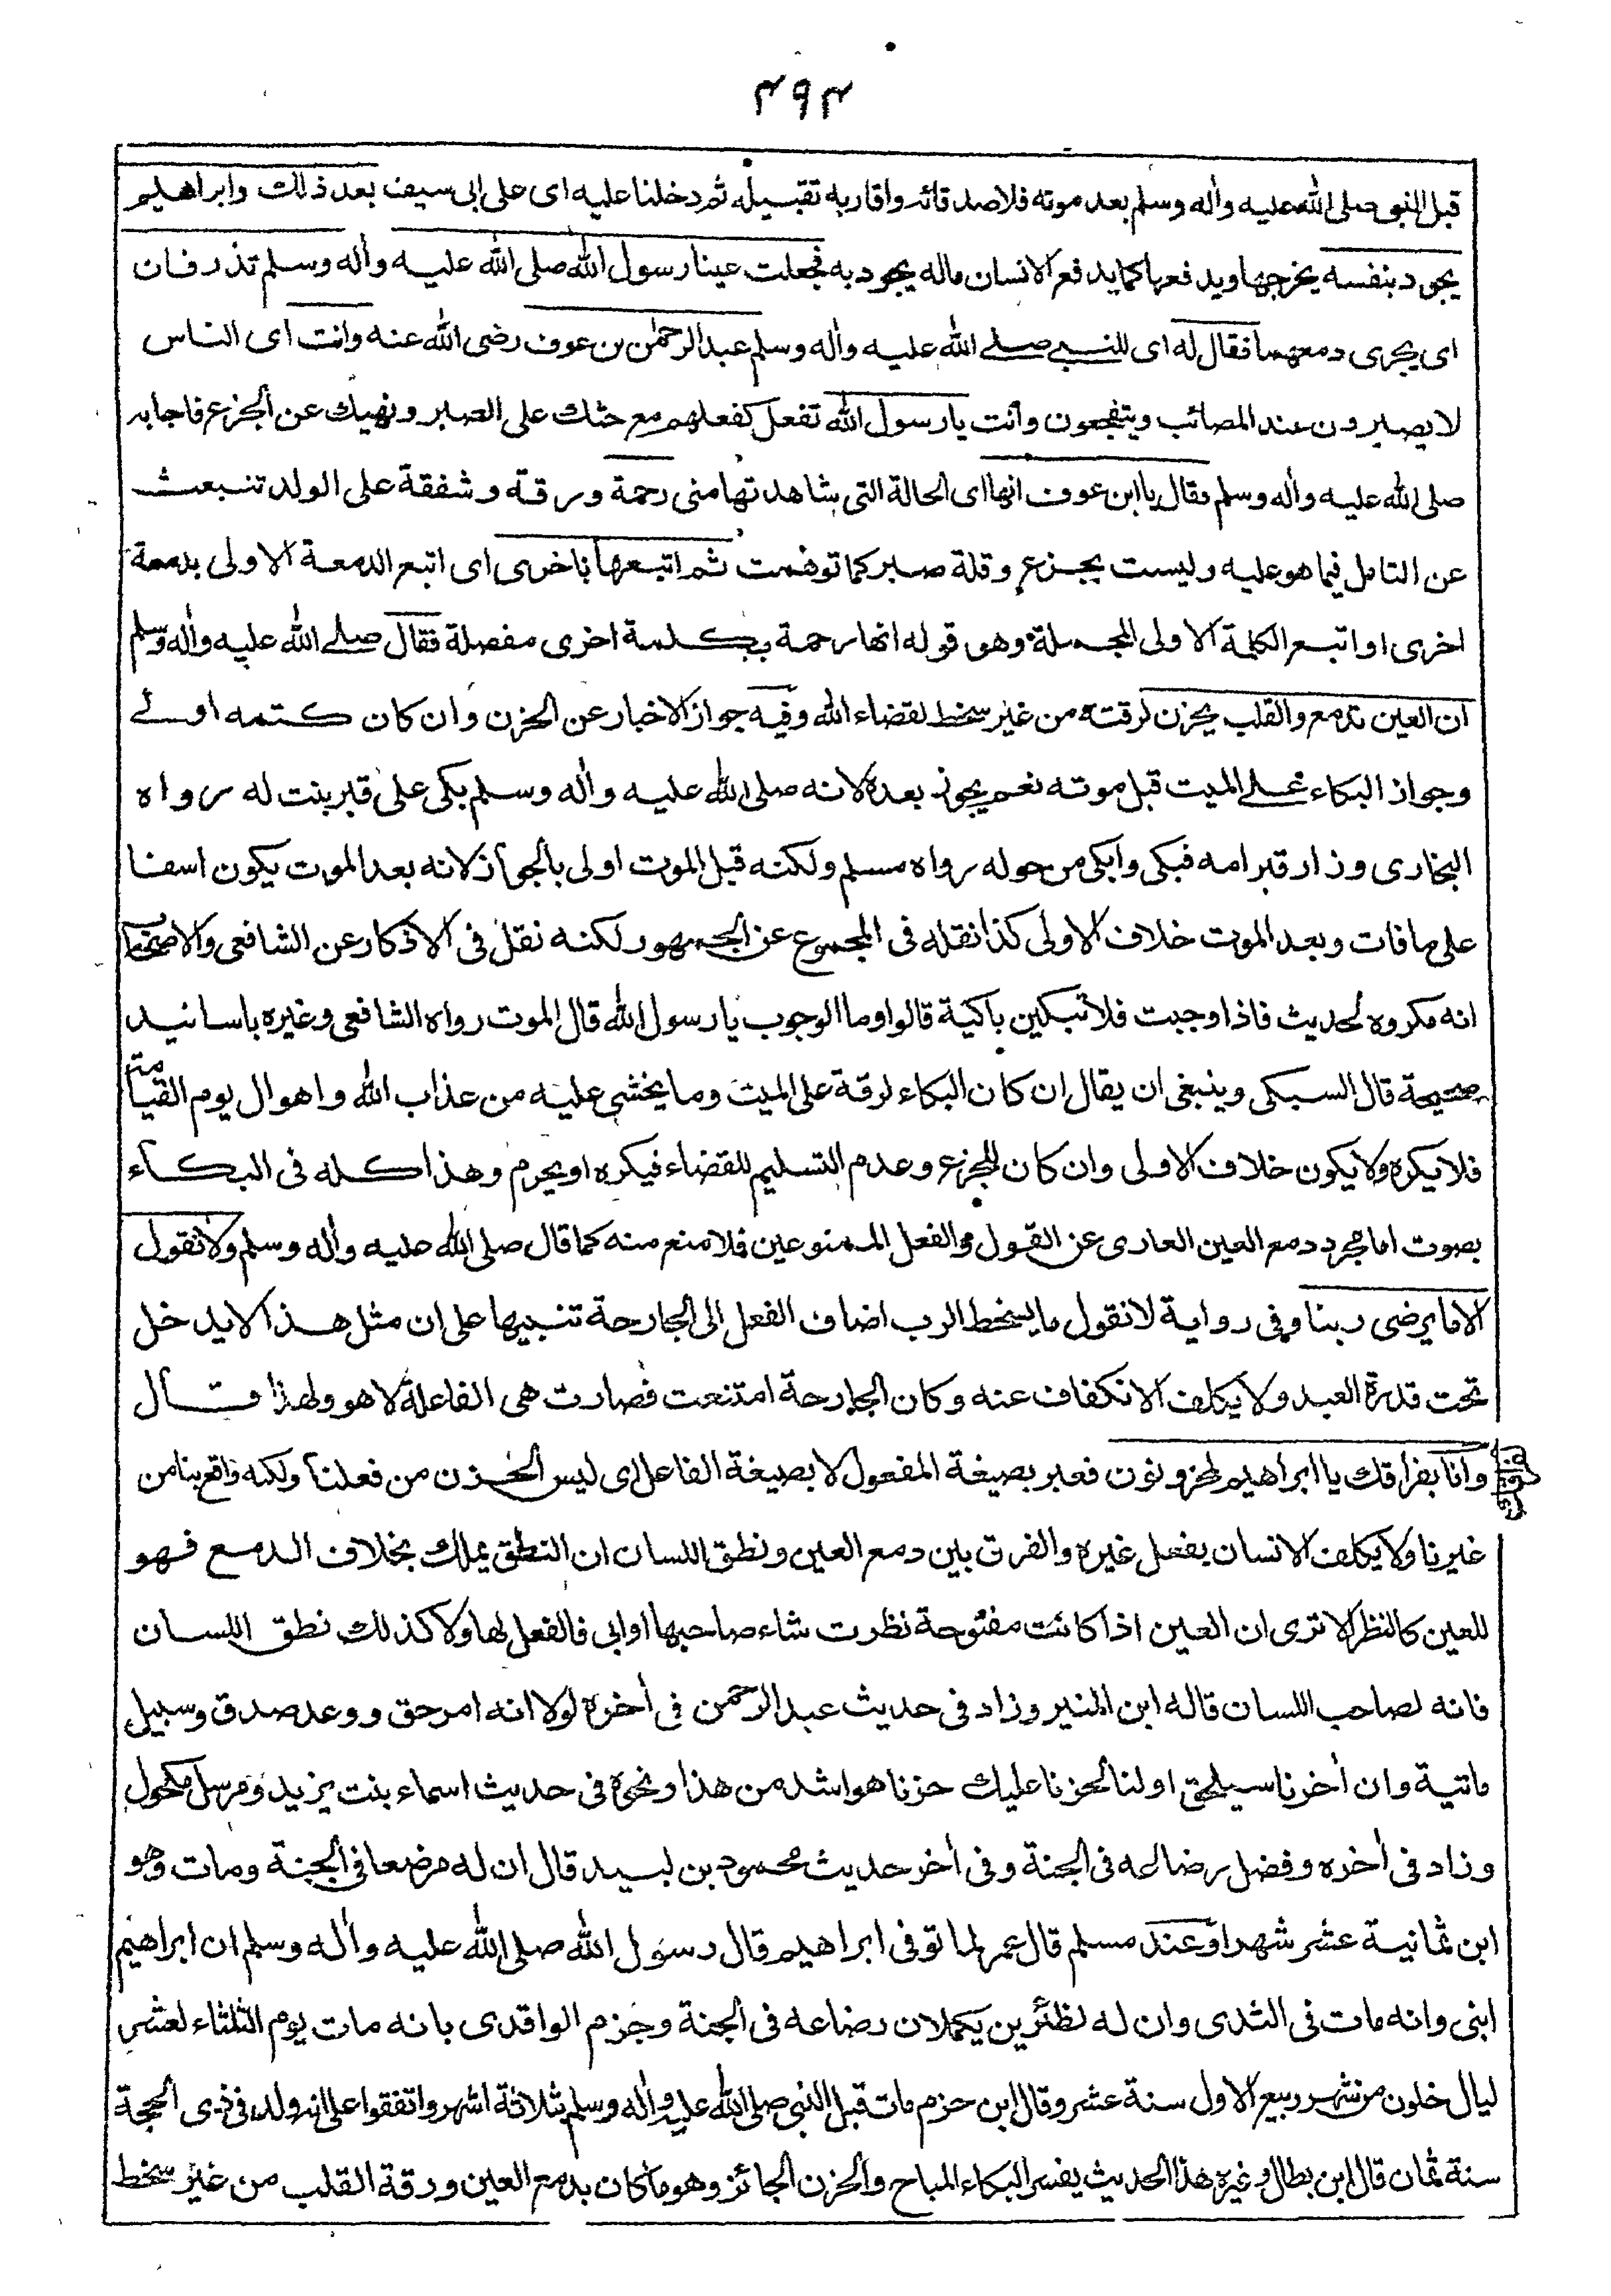 ٣٩٣
قبل النبي صلى الله عليه وأله وسلم بعد موته فلاصدقائه واقاربه تقبيله ثم دخلنا عليه اى على ابى سيف بعد ذلك وابراهيم
يجود بنفسه يخرجها ويدفعها كما يدفع الانسان ماله يجود به فجعلت عينا رسول الله صلى الله عليه وأله وسلم تذرفان
اى يجرى دمعهما فقال له اى للنبي صلے الله عليه وأله وسلم عبدالرحمٰن بن عوف رضى الله عنه وانت اى الناس
لا يصبرون عند المصائب ويتفجعون وأنت يا رسول الله تفعل كفعلهم مع حثك على الصبر ونهيك عن الجزع فاجابه
صلى الله عليه وأله وسلم فقال يا ابن عوف انها اى الحالة التى شاهدتها منى رحمة ورقة وشفقة على الولد تنبعث
عن التامل فيما هو عليه وليست بجزع وقلة صبر كما توهمت ثم اتبعها باخرى اى اتبع الدمعة الاولى بدمعة
اخرى او اتبع الكلمة الاولى المجملة وهو قوله انها رحمة بكلمة اخرى مفصلة فقال صلے الله عليه وأله وسلم
ان العين تدمع والقلب يحزن لرقته من غير سخط لقضاء الله وفيه جواز الاخبار عن الحزن وان كان كتمه اولے
وجواز البكاء علے الميت قبل موته نعم يجوز بعده لانه صلى الله عليه وأله وسلم بكى على قبر بنت له رواه
البخارى وزار قبر امه فبكى وابكى من حوله رواه مسلم ولكنه قبل الموت اولى بالجواز لانه بعد الموت يكون اسفا
على ما فات وبعد الموت خلاف الاولى كذا نقله فى المجموع عن الجمهور لكنه نقل فى الاذكار عن الشافعى والاصحاب
انه مكروه لحديث فاذا وجبت فلا تبكين باكية قالوا وما الوجوب يا رسول الله قال الموت رواه الشافعى وغيره باسانيد
صحيحة قال السبكى وينبغى ان يقال ان كان البكاء لرقة على الميت وما يخشى عليه من عذاب الله واهوال يوم القيامة
فلا يكره ولا يكون خلاف الاولى وان كان للجزع وعدم التسليم للقضاء فيكره او يحرم وهذا كله فى البكاء
بصوت اما مجرد دمع العين العارى عن القول والفعل الممنوعين فلا منع منه كما قال صلى الله عليه وأله وسلم ولا نقول
الا ما يرضى ربنا وفى رواية لا نقول ما يسخط الرب اضاف الفعل الى الجارحة تنبيها على ان مثل هذا لا يدخل
تحت قدرة العبد ولا يكلف الانكفاف عنه وكان الجارحة امتنعت فصارت هى الفاعلة لا هو ولهذا قال
وانا بفراقك يا ابراهيم لمحزونون فعبر بصيغة المفعول لا بصيغة الفاعل اى ليس الحزن من فعلنا ولكنه واقع بنا من
غيرنا ولا يكلف الانسان بفعل غيره والفرق بين دمع العين ونطق اللسان ان النطق يملك بخلاف الدمع فهو
للعين كالنظر الا ترى ان العين اذا كانت مفتوحة نظرت شاء صاحبها او ابى فالفعل لها ولا كذلك نطق اللسان
فانه لصاحب اللسان قاله ابن المنير وزاد فى حديث عبدالرحمن فى أخره لولا انه امر حق ووعد صدق وسبيل
ماتية وان أخرنا سيلحق اولنا لحزنا عليك حزنا هو اشد من هذا ونحوه فى حديث اسماء بنت يزيد ومرسل مكحول
وزاد فى أخره وفضل رضاعه فى الجنة وفى أخر حديث محمود بن لبيد قال ان له مرضعا فى الجنة ومات وهو
ابن ثمانية عشر شهرا وعند مسلم قال عمر لما توفى ابراهيم قال رسول الله صلى الله عليه وأله وسلم ان ابراهيم
ابنى وانه مات فى الثدى وان له لظئرين يكملان رضاعه فى الجنة وجزم الواقدى بانه مات يوم الثلثاء لعشر
ليال خلون من شهر ربيع الاول سنة عشر وقال ابن حزم مات قبل النبى صلى الله عليه وأله وسلم بثلاثة اشهر واتفقوا على انه ولد فى ذى الحجة
سنة ثمان قال ابن بطال وغيره هذا الحديث يفسر البكاء المباح والحزن الجائز وهو ما كان بدمع العين ورقة القلب من غير سخط